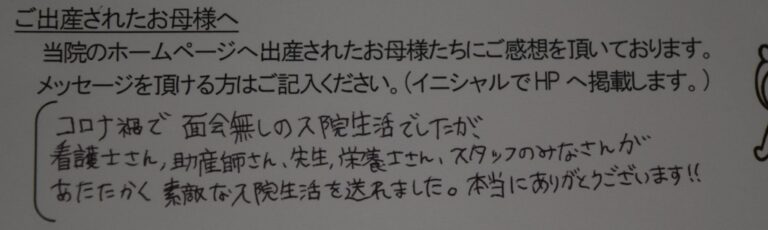 ご出産されたお母様へ
当院のホームページへ出産されたお母様たちにご感想を頂いております。
メッセージを頂ける方はご記入ください。（イニシャルでHPへ掲載します。）
コロナ禍で 面会無しの入院生活でしたが、
看護士さん,助産師さん、先生,栄養士さん、スタッフのみなさんが
あたたかく 素敵な入院生活を送れました。本当にありがとうございます!!